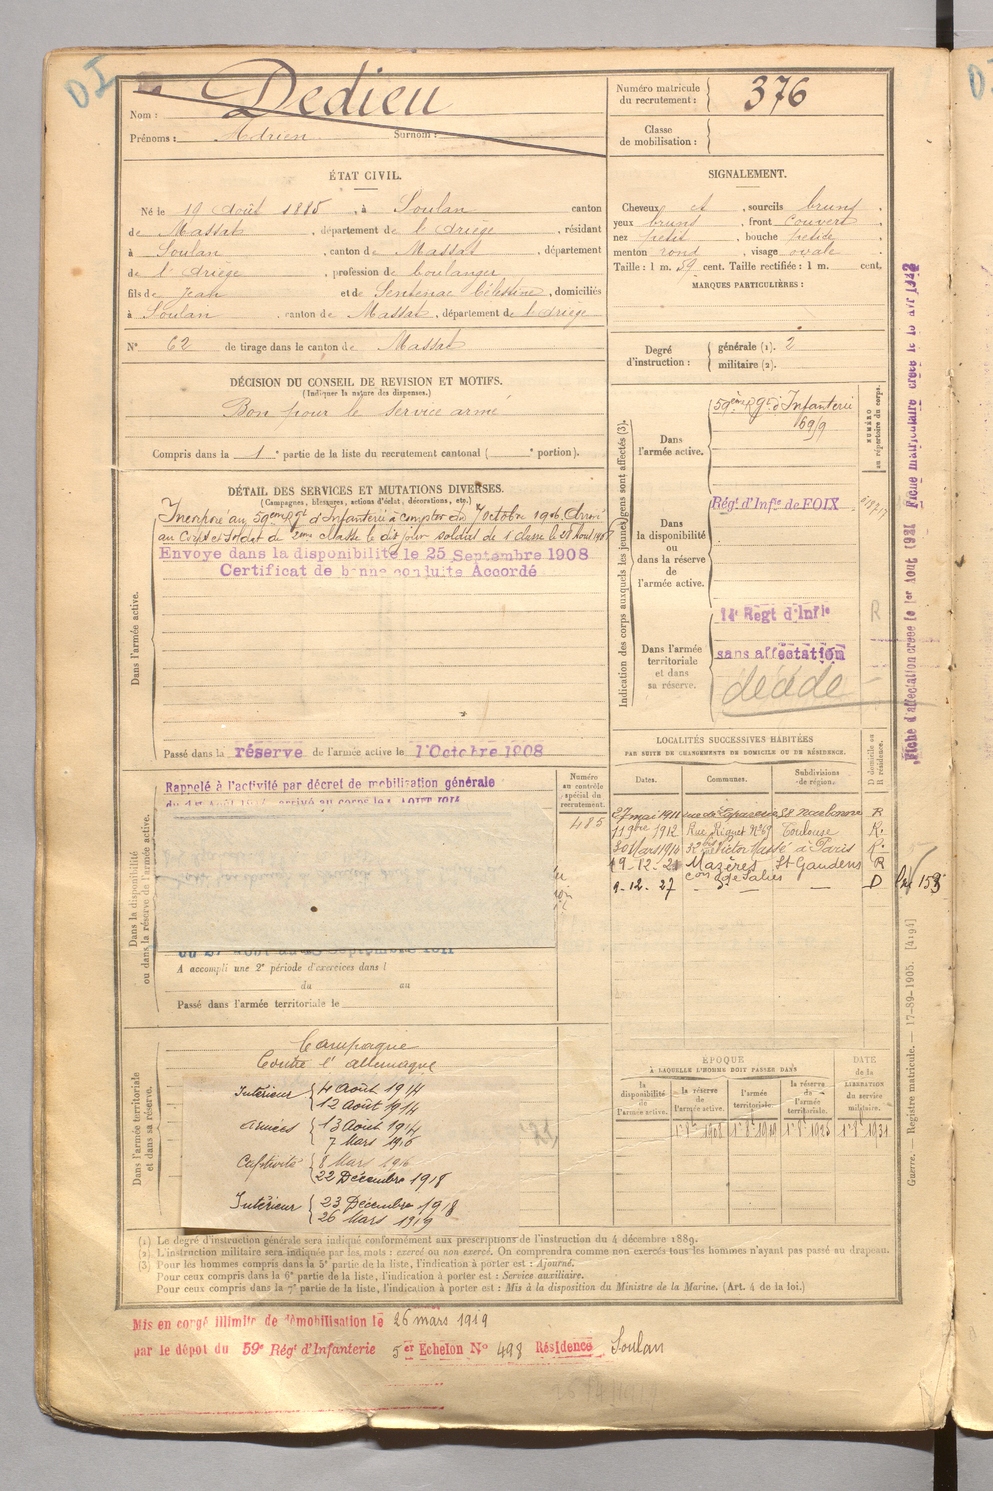 DI
Nom : Dedieu
Prénoms : Adrien Surnom :
Numéro matricule du recrutement : 376
Classe de mobilisation :
ÉTAT CIVIL.
Né le 19 Août 1885, à Soulan canton
de Massat, département de l'Ariège, résidant
à Soulan, canton de Massat, département
de l'Ariège, profession de boulanger
fils de Jean et de Sentenac Célestine, domiciliés
à Soulan, canton de Massat, département de l'Ariège
N° 62 de tirage dans le canton de Massat
SIGNALEMENT.
Cheveux et, sourcils bruns,
yeux bruns, front couvert,
nez petit, bouche petite,
menton rond, visage ovale.
Taille : 1 m. 59 cent. Taille rectifiée : 1 m. cent.
MARQUES PARTICULIÈRES :
Degré d'instruction :
générale (1). 2
militaire (2).
DÉCISION DU CONSEIL DE REVISION ET MOTIFS.
(Indiquer la nature des dispenses.)
Bon pour le service armé
Compris dans la 1e partie de la liste du recrutement cantonal ( e portion).
DÉTAIL DES SERVICES ET MUTATIONS DIVERSES.
(Campagnes, blessures, actions d'éclat, décorations, etc.)
Incorporé au 59ème Rgt d'Infanterie à compter du 7 octobre 1906. Arrivé
au Corps et soldat de 2ème classe le dit jour soldat de 1e classe le 28 Aout 1908
Envoye dans la disponibilité le 25 Septembre 1908
Certificat de bonne conduite Accordé
Dans l'armée active.
Passé dans la réserve de l'armée active le 1 Octobre 1908
Indication des corps auxquels les jeunes gens sont affectés (3).
NUMÉRO au répertoire du corps.
Dans l'armée active.
59ème Rgt d'Infanterie
Dans la disponibilité ou dans la réserve de l'armée active.
Régt d'Infie de FOIX
Dans l'armée territoriale et dans sa réserve.
14e Regt d'Infie
R
sans affectation
décédé
LOCALITÉS SUCCESSIVES HABITÉES
PAR SUITE DE CHANGEMENTS DE DOMICILE OU DE RÉSIDENCE.
Dates. Communes. Subdivisions de région. D domicile ou R résidence.
27 mai 1911 Narbonne R
11 9bre 1912 Rue Riquet N° 69 Toulouse R.
30 Mars 1914 Victor Massé à Paris R.
19-12-21 Mazères con de Salies St Gaudens R
9-12-27 - d° - - D
Dans la disponibilité ou dans la réserve de l'armée active.
Rappelé à l'activité par décret de mobilisation générale
Numéro au contrôle spécial du recrutement.
485
A accompli une 2e période d'exercices dans l
du au
Passé dans l'armée territoriale le
Dans l'armée territoriale et dans sa réserve.
Campagne
Contre l'allemagne
Intérieur { 4 Août 1914
12 Août 1914
Armées { 13 Août 1914
7 Mars 1916
Captivité { 8 Mars 1916
22 Décembre 1918
Intérieur { 23 Décembre 1918
26 Mars 1919
ÉPOQUE
À LAQUELLE L'HOMME DOIT PASSER DANS
la disponibilité de l'armée active. la réserve de l'armée active. l'armée territoriale. la réserve de l'armée territoriale.
DATE de la LIBÉRATION du service militaire.
(1) Le degré d'instruction générale sera indiqué conformément aux prescriptions de l'instruction du 4 décembre 1889.
(2) L'instruction militaire sera indiquée par les mots : exercé ou non exercé. On comprendra comme non exercés tous les hommes n'ayant pas passé au drapeau.
(3) Pour les hommes compris dans la 5e partie de la liste, l'indication à porter est : Ajourné.
Pour ceux compris dans la 6e partie de la liste, l'indication à porter est : Service auxiliaire.
Pour ceux compris dans la 7e partie de la liste, l'indication à porter est : Mis à la disposition du Ministre de la Marine. (Art. 4 de la loi.)
Mis en congé illimité de démobilisation le 26 mars 1919
par le dépot du 59e Régt d'Infanterie 5er Echelon N° 498 Résidence Soulan
Guerre. — Registre matricule. — 17-89-1905. [4194]